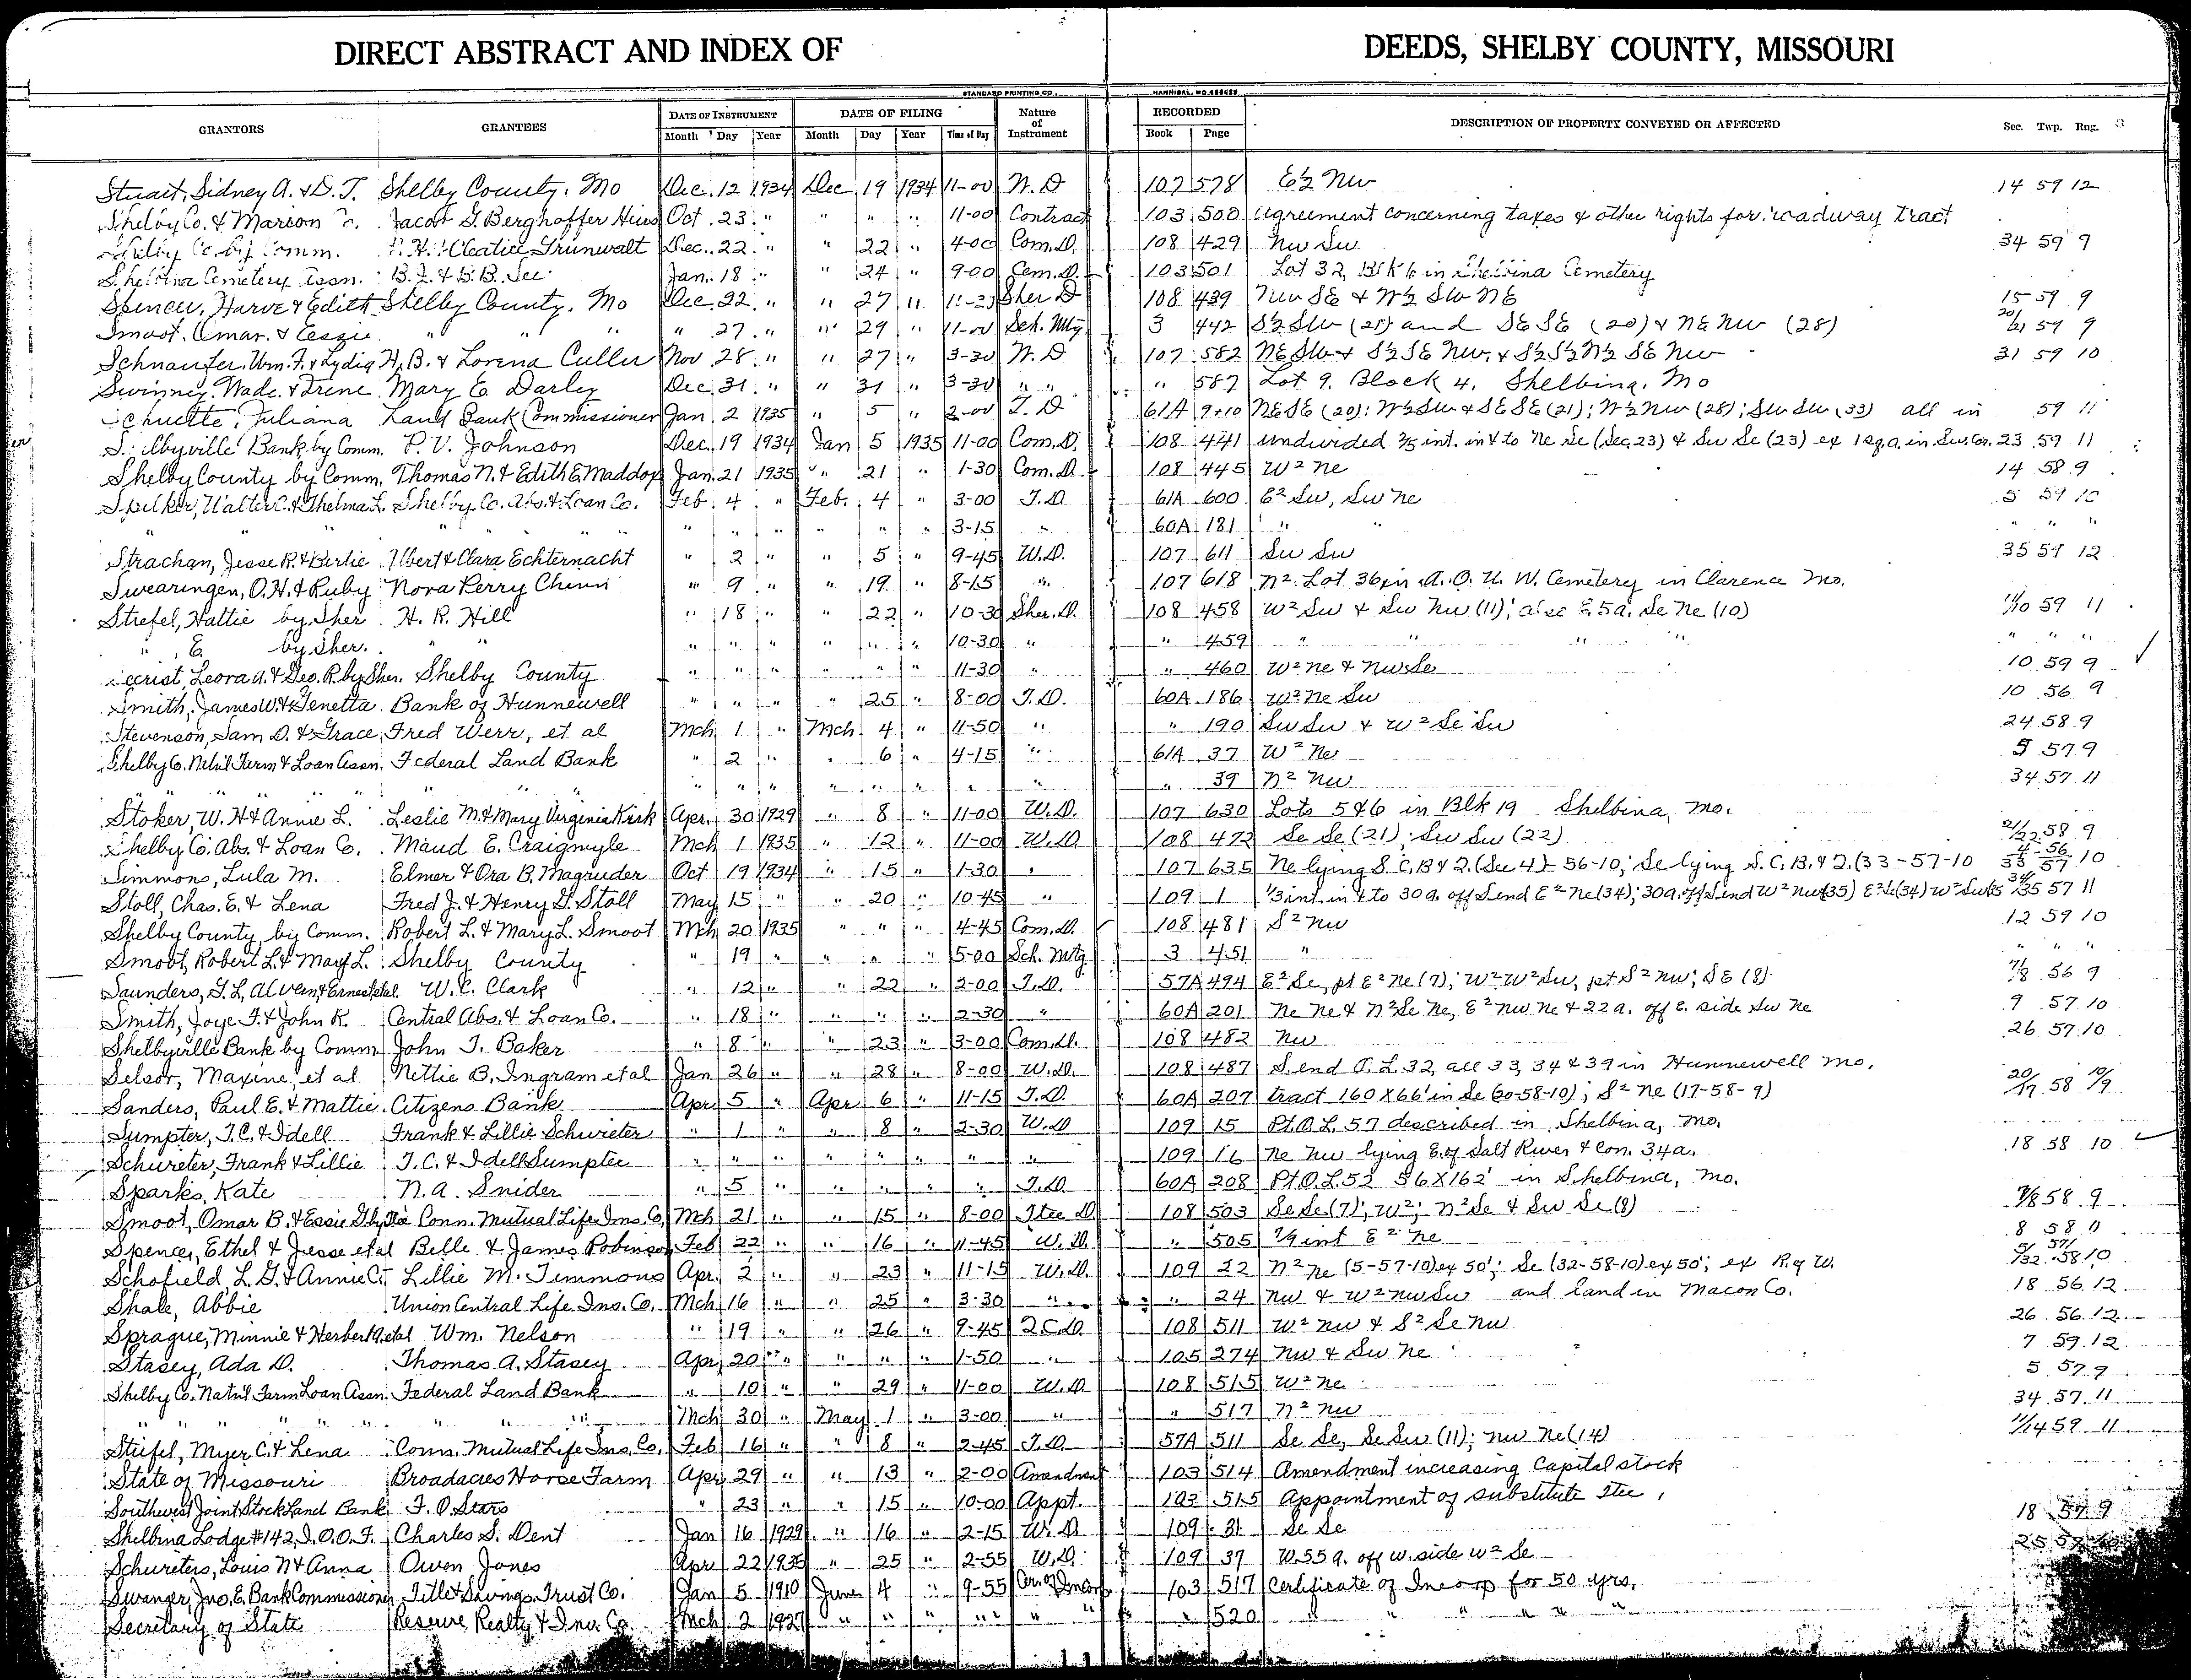 DIRECT ABSTRACT AND INDEX OF DEEDS, SHELBY COUNTY, MISSOURI
STANDARD PRINTING CO. HANNIBAL, MO.
GRANTORS GRANTEES DATE OF INSTRUMENT DATE OF FILING Nature of Instrument RECORDED DESCRIPTION OF PROPERTY CONVEYED OR AFFECTED Sec. Twp. Rng.
Month Day Year Month Day Year Time of Day Book Page
Stuart, Sidney A. & D. T. Shelby County, Mo Dec 12 1934 Dec 19 1934 11-00 W. D 107 578 E½ NW 14 59 12
Shelby Co. & Marion Co. Jacob G. Berghoffer Heirs Oct 23 " " " " 11-00 Contract 103 500 Agreement concerning taxes & other rights for roadway tract
Shelby Co. by Comm. Cleatice Grunwalt Dec. 22 " " 22 " 4-00 Com. D. 108 429 NW SW 34 59 9
Shelbina Cemetery Assn. B. F. & B. B. Jan. 18 " " 24 " 9-00 Cem. D. 103 501 Lot 32, Blk 6 in Shelbina Cemetery
Spencer, Harve & Edith Shelby County, Mo Dec 22 " " 27 " Sher D 108 439 NW SE & W½ SW NE 15 59 9
Smoot, Omar & Essie " " " " 27 " " 29 " 11-00 Sch. Mtg. 3 442 S½ SW (21) and SE SE (20) & NE NW (28) 20/21 59 9
Schnaufer, Wm. F. & Lydia H. B. & Lorena Culler Nov 28 " " 27 " 3-30 W. D 107 582 NE SW & S½ SE NW, & S½ S½ N½ SE NW 31 59 10
Swinney, Wade & Irene Mary E. Darley Dec 31 " " 31 " 3-30 " " " 587 Lot 9, Block 4, Shelbina, Mo
Schuette, Juliana Land Bank Commissioner Jan 2 1935 " 5 " 2-00 T. D 61A 9+10 NE SE (20); W½ SW & SE SE (21); W½ NW (28); SW SW (33) all in 59 11
Shelbyville Bank by Comm. P. V. Johnson Dec. 19 1934 Jan 5 1935 11-00 Com. D. 108 441 Undivided ⅖ int. in & to Ne Se (Sec. 23) & Sw Se (23) ex 1 sq. a. in Sw. Cor. 23 59 11
Shelby County by Comm. Thomas N. & Edith E. Maddox Jan. 21 1935 " 21 " 1-30 Com. D. 108 445 W² Ne 14 58 9
Spilker, Walter C. & Thelma L. Shelby Co. Abs. & Loan Co. Feb. 4 " Feb. 4 " 3-00 T. D. 61A 600 E² Sw, Sw Ne 5 59 10
" " " " " " " " 3-15 " 60A 181 " " " " "
Strachan, Jesse R. & Birlie Albert & Clara Echternacht " 2 " " 5 " 9-45 W. D. 107 611 Sw Sw 35 59 12
Swearingen, O. H. & Ruby Nora Perry Chinn " 9 " " 19 " 8-15 " 107 618 N² Lot 36 in A. O. U. W. Cemetery in Clarence Mo.
Striefel, Hattie by Sher H. R. Hill " 18 " " 22 " 10-30 Sher. D. 108 458 W² Sw & Sw Nw (11); also E. 5a. Se Ne (10) 11/10 59 11
" , E. by Sher. " " " " " " " " 10-30 " " 459 " " " " " " "
Leora A. & Geo. R. by Sher. Shelby County " " " " " " 11-30 " " 460 W² Ne & Nw Se 10 59 9
Smith, James W. & Genetta Bank of Hunnewell " " " " 25 " 8-00 T. D. 60A 186 W² Ne Sw 10 56 9
Stevenson, Sam D. & Grace Fred Werr, et al Mch 1 " Mch 4 " 11-50 " " 190 Sw Sw & W² Se Sw 24 58 9
Shelby Co. Nat'l Farm & Loan Assn. Federal Land Bank " 2 " " 6 " 4-15 " 61A 37 W² Ne 5 57 9
" " " " " " " " " " " " " " 39 N² Nw 34 57 11
Stoker, W. H. & Annie L. Leslie M. & Mary Virginia Kirk Apr. 30 1929 " 8 " 11-00 W. D. 107 630 Lots 5 & 6 in Blk 19 Shelbina, Mo.
Shelby Co. Abs. & Loan Co. Maud E. Craigmyle Mch 1 1935 " 12 " 11-00 W. D. 108 472 Se Se (21); Sw Sw (22) 21/22 58 9
Simmons, Lula M. Elmer & Ora B. Magruder Oct 19 1934 " 15 " 1-30 " 107 635 Ne lying S. C. B & Q. (Sec 4)-56-10; Se lying S. C. B. & Q. (33-57-10 4-56 33 57 10
Stoll, Chas. E. & Lena Fred J. & Henry G. Stoll May 15 " " 20 " 10-45 " 109 1 ⅓ int. in & to 30 a. off S end E² Ne (34); 30a. off S end W² Nw (35) E² Se (34) W² Sw 35 34/35 57 11
Shelby County, by Comm. Robert L. & Mary L. Smoot Mch 20 1935 " " " 4-45 Com. D. 108 481 S² Nw 12 59 10
Smoot, Robert L. & Mary L. Shelby County " 19 " " " " 5-00 Sch. Mtg 3 451 " " " "
Saunders, S. L, Alvern & Ernest et al. W. C. Clark " 12 " " 22 " 2-00 T. D. 57A 494 E² Se, pt E² Ne (7); W² W² Sw, pt S² Nw; SE (8) 7/8 56 9
Smith, Joye F. & John R. Central Abs. & Loan Co. " 18 " " " " 2-30 " 60A 201 Ne Ne & N² Se Ne, E² Nw Ne & 22 a. off E. side Sw Ne 9 57 10
Shelbyville Bank by Comm. John T. Baker " 8 " " 23 " 3-00 Com. D. 108 482 Nw 26 57 10
Selsor, Maxine, et al Nettie B. Ingram et al Jan 26 " " 28 " 8-00 W. D. 108 487 S. end O. L. 32, all 33, 34 & 39 in Hunnewell Mo.
Sanders, Paul E. & Mattie Citizens Bank Apr 5 " Apr 6 " 11-15 T. D. 60A 207 tract 160 X 66' in Se (20-58-10); S² Ne (17-58-9) 20/17 58 10/9
Sumpter, T. C. & Idell Frank & Lillie Schwieter " 1 " " 8 " 2-30 W. D 109 15 Pt. O. L. 57 described in Shelbina, Mo.
Schwieter, Frank & Lillie T. C. & Idell Sumpter " " " " " " " " 109 16 Ne Nw lying E. of Salt River & Con. 34a. 18 58 10
Sparks, Kate N. A. Snider " 5 " " " " " T. D. 60A 208 Pt. O. L. 52 56 X 162' in Shelbina, Mo.
Smoot, Omar B. & Essie Conn. Mutual Life Ins. Co. Mch 21 " " 15 " 8-00 Stee D. 108 503 Se Se (7); W²; N² Se & Sw Se (8) 7/8 58 9
Spencer, Ethel & Jesse et al Belle & James Robinson Feb 22 " " 16 " 11-45 W. D. " 505 1/9 int E² Ne 8 58 11
Schofield, L. G. & Annie C. Lillie M. Timmons Apr. 2 " " 23 " 11-15 W. D. 109 22 N² Ne (5-57-10) ex 50'; Se (32-58-10) ex 50'; ex R. of W. 5/32 57/58 10
Shale, Abbie Union Central Life Ins. Co. Mch 16 " " 25 " 3-30 " " 24 Nw & W² Nw Sw and land in Macon Co. 18 56 12
Sprague, Minnie & Herbert et al Wm. Nelson " 19 " " 26 " 9-45 Q C D. 108 511 W² Nw & S² Se Nw 26 56 12
Stasey, Ada D. Thomas A. Stasey Apr 20 " " " " 1-50 " 105 274 Nw & Sw Ne 7 59 12
Shelby Co. Nat'n'l Farm Loan Assn Federal Land Bank " 10 " " 29 " 11-00 W. D 108 515 W² Ne 5 57 9
" " " " " " " Mch 30 " May 1 " 3-00 " " 517 N² Nw 34 57 11
Striefel, Myer C. & Lena Conn. Mutual Life Ins. Co. Feb 16 " " 8 " 2-45 T. D. 57A 511 Se Se, Se Sw (11); Nw Ne (14) 11/14 59 11
State of Missouri Broadacres Horse Farm Apr 29 " " 13 " 2-00 Amendment 103 514 Amendment increasing Capital stock
Southwest Joint Stock Land Bank F. O. Stars " 23 " " 15 " 10-00 Appt. 103 515 Appointment of substitute Stee
Shelbina Lodge #142, I. O. O. F. Charles S. Dent Jan 16 1929 " 16 " 2-15 W. D 109 31 Se Se 18 57 9
Schwieters, Louis N & Anna Owen Jones Apr 22 1935 " 25 " 2-55 W. D. 109 37 W. 55 a. off W. side W² Se 25
Swanger, Jno. E. Bank Commissioner Title & Savings Trust Co. Jan 5 1910 June 4 " 9-55 Cer. of Incorp 103 517 Certificate of Incorp for 50 yrs.
Secretary of State Reserve Realty & Inv. Co. Mch 2 1927 " " " " " " " 520 " " " " "